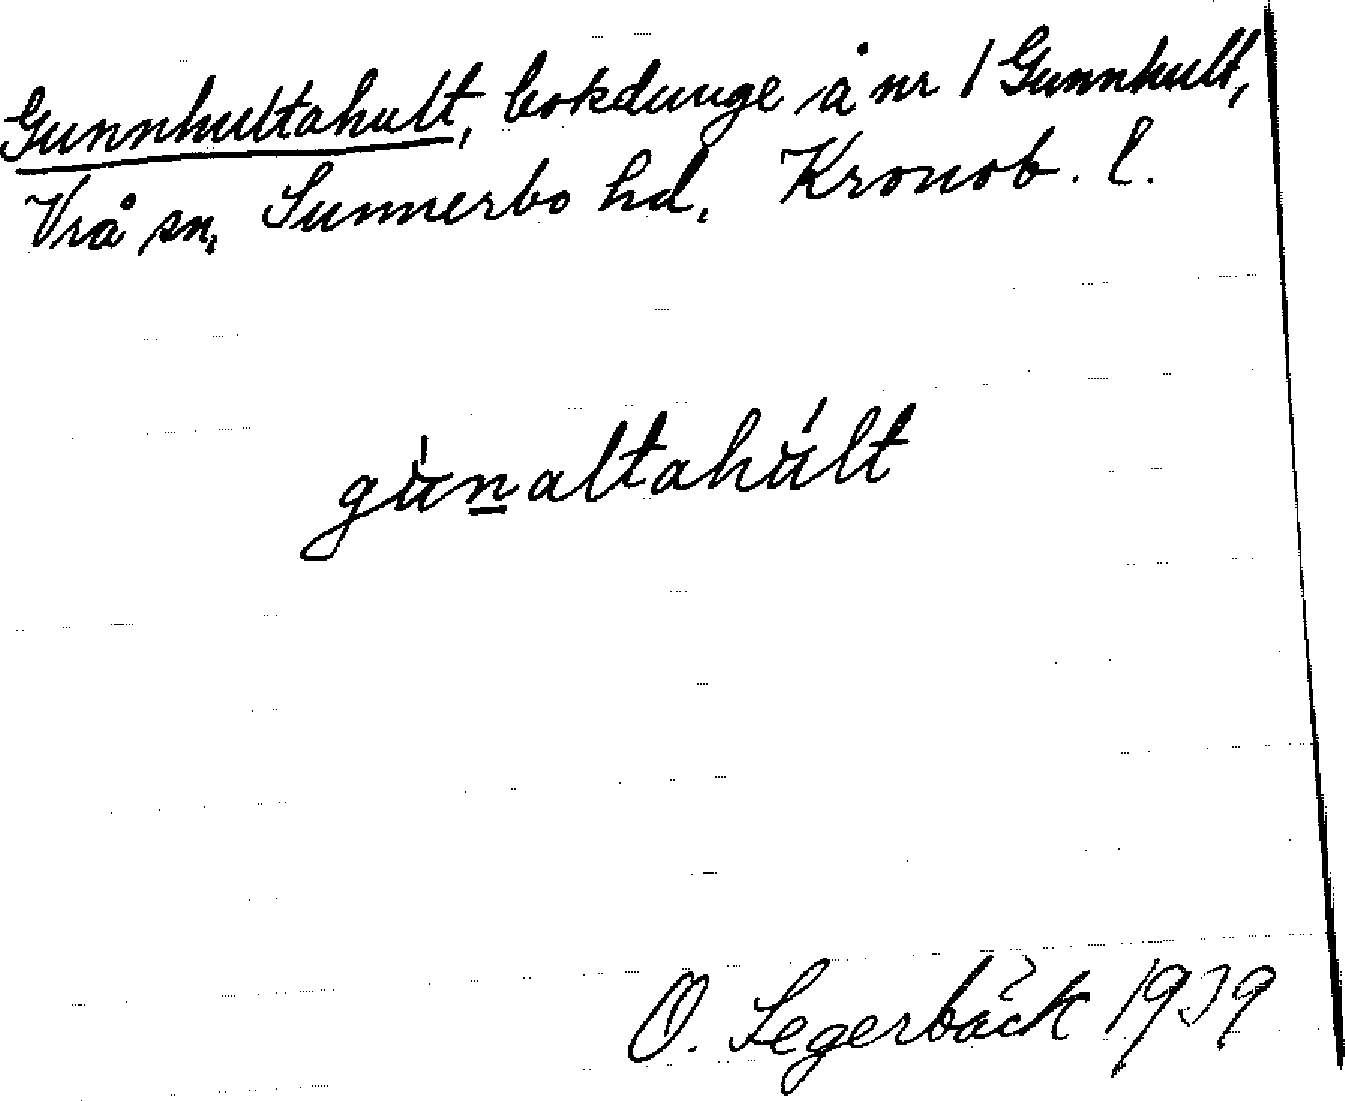 Gunnhultahult, bokdunge å nr 1 Gunnhult,
Vrå sn, Sunnerbo hd, Kronob. l.
gùnaltahúlt
O. Segerbäck 1939